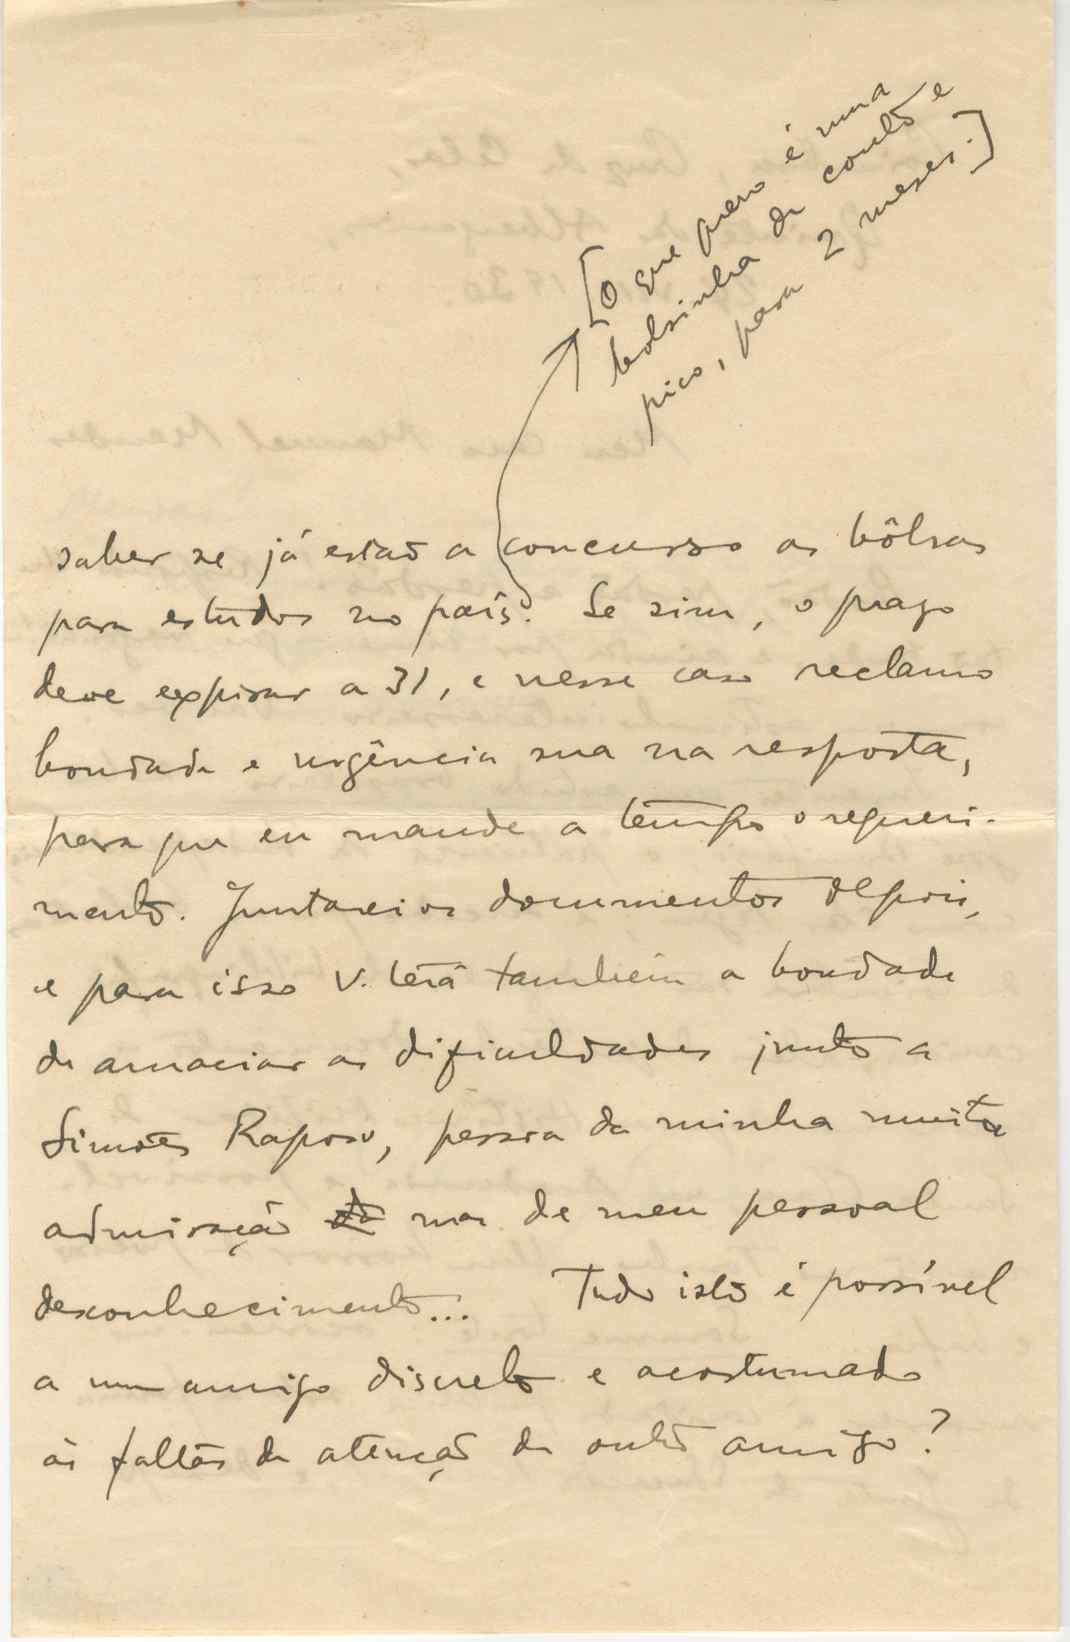 [O que quero é uma
bolsinha de conto e
pico, para 2 meses.]
saber se já estão a concurso as bôlsas
para estudos no país. Se sim, o prazo
deve expirar a 31, e nesse caso reclamo
bondade e urgência sua na resposta,
para que eu mande a tempo o requeri-
mento. Juntarei os documentos depois,
e para isso V. terá tambêm a bondade
de amaciar as dificuldades junto a
Simões Raposo, pessoa da minha muita
admiração mas de meu pessoal
desconhecimento... Tudo isto é possível
a um amigo discreto e acostumado
às faltas de atenção de outro amigo?